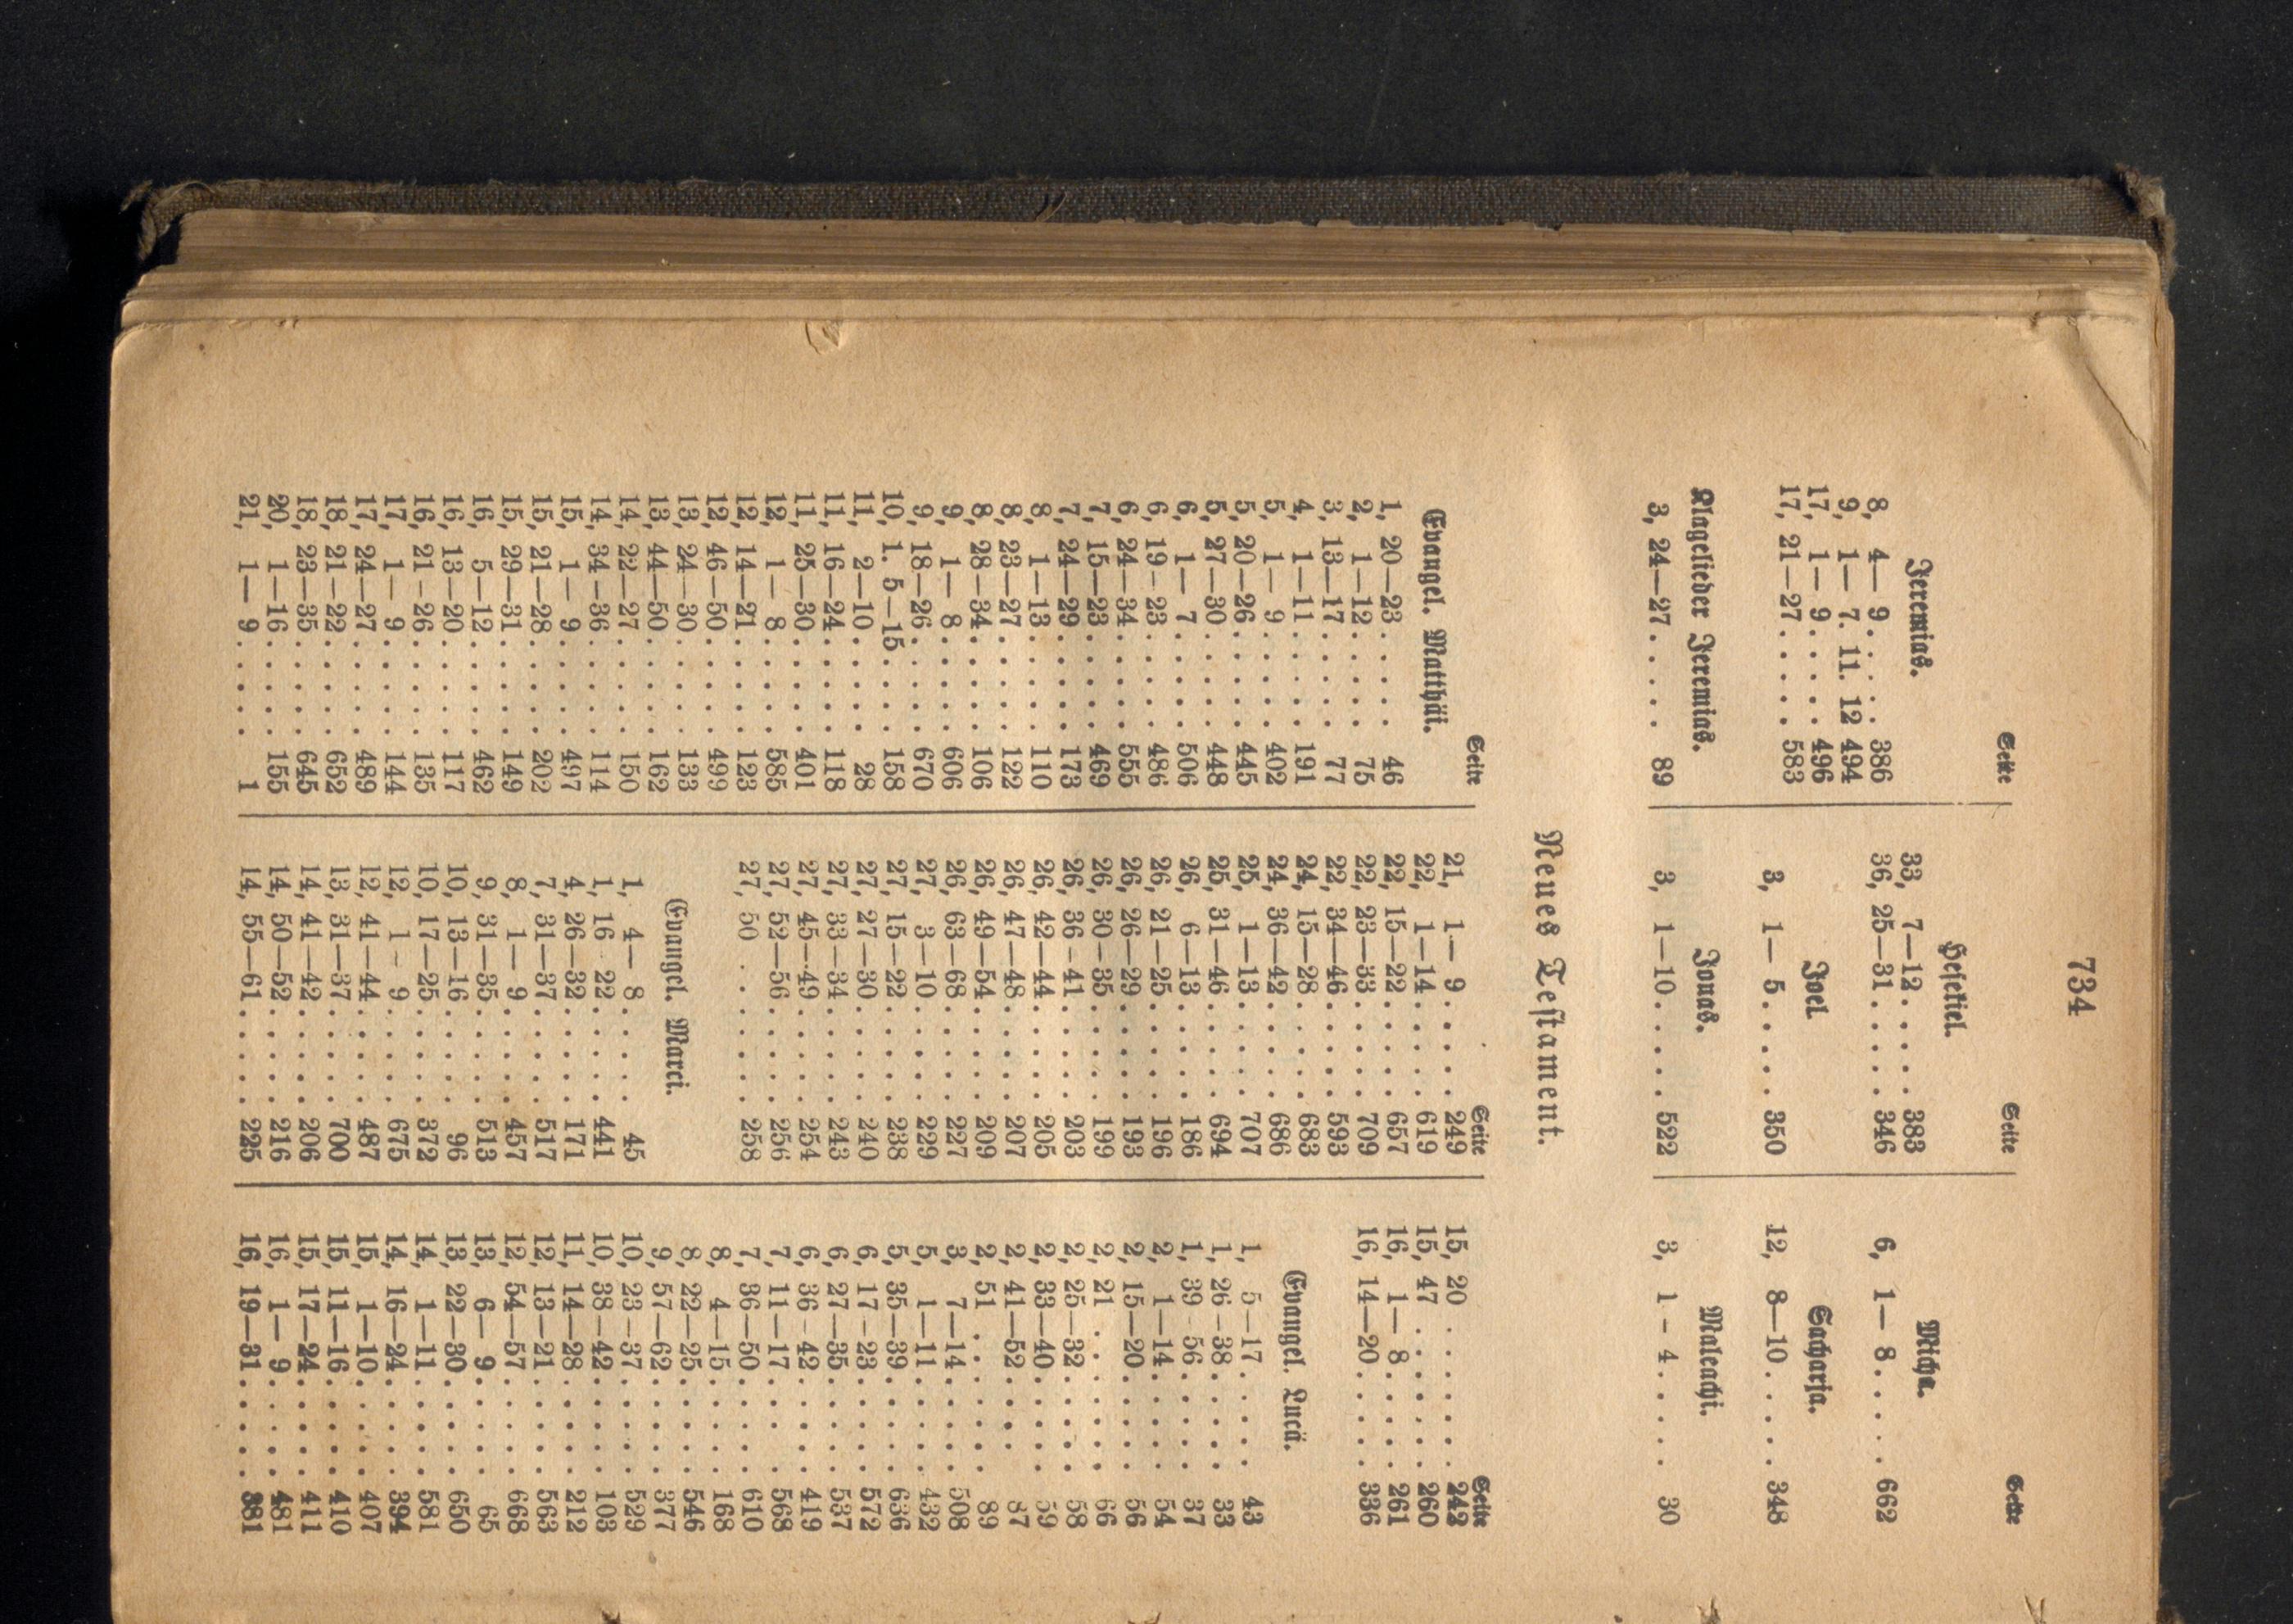 734
Seite
Jeremias.
8, 4— 9 . . . . 386
9, 1— 7. 11. 12 494
17, 1— 9 . . . . 496
17, 21—27 . . . . 583
Klagelieder Jeremias.
3, 24—27 . . . . 89
Seite
Hesekiel.
33, 7—12 . . . . 383
36, 25—31 . . . . . 346
Joel
3, 1— 5 . . . . . 350
Jonas.
3, 1—10 . . . . . 522
Seite
Micha.
6, 1— 8 . . . . 662
Sacharja.
12, 8—10 . . . . 348
Maleachi.
3, 1 - 4 . . . . 30
Neues Testament.
Seite
Evangel. Matthäi.
1, 20—23 . . . . 46
2, 1—12 . . . . 75
3, 13—17 . . . . 77
4, 1—11 . . . . 191
5, 1— 9 . . . . 402
5, 20—26 . . . . 445
5, 27—30 . . . . 448
6, 1— 7 . . . . 506
6, 19—23 . . . . 486
6, 24—34 . . . . 555
7, 15—23 . . . . 469
7, 24—29 . . . . 173
8, 1—13 . . . . 110
8, 23—27 . . . . 122
8, 28—34 . . . . 106
9, 1— 8 . . . . 606
9, 18—26 . . . . 670
10, 1. 5—15 . . . . 158
11, 2—10 . . . . 28
11, 16—24 . . . . 118
11, 25—30 . . . . 401
12, 1— 8 . . . . 585
12, 14—21 . . . . 123
12, 46—50 . . . . 499
13, 24—30 . . . . 133
13, 44—50 . . . . 162
14, 22—27 . . . . 150
14, 34—36 . . . . 114
15, 1— 9 . . . . 497
15, 21—28 . . . . 202
15, 29—31 . . . . 149
16, 5—12 . . . . 462
16, 13—20 . . . . 117
16, 21—26 . . . . 135
17, 1— 9 . . . . 144
17, 24—27 . . . . 489
18, 21—22 . . . . 652
18, 23—35 . . . . 645
20, 1—16 . . . . 155
21, 1— 9 . . . . 1
Seite
21, 1— 9 . . . . 249
22, 1—14 . . . . 619
22, 15—22 . . . . 657
22, 23—33 . . . . 709
22, 34—46 . . . . 593
24, 15—28 . . . . 683
24, 36—42 . . . . 686
25, 1—13 . . . . 707
25, 31—46 . . . . 694
26, 6—13 . . . . 186
26, 21—25 . . . . 196
26, 26—29 . . . . 193
26, 30—35 . . . . 199
26, 36—41 . . . . 203
26, 42—44 . . . . 205
26, 47—48 . . . . 207
26, 49—54 . . . . 209
26, 63—68 . . . . 227
27, 3—10 . . . . 229
27, 15—22 . . . . 238
27, 27—30 . . . . 240
27, 33—34 . . . . 243
27, 45—49 . . . . 254
27, 52—56 . . . . 256
27, 50 . . . . . . 258
Evangel. Marci.
1, 4— 8 . . . . 45
1, 16 - 22 . . . . 441
4, 26—32 . . . . 171
7, 31—37 . . . . 517
8, 1— 9 . . . . 457
9, 31—35 . . . . 513
10, 13—16 . . . . 96
10, 17—25 . . . . 372
12, 1 - 9 . . . . 675
12, 41—44 . . . . 487
13, 31—37 . . . . 700
14, 41—42 . . . . 206
14, 50—52 . . . . 216
14, 55—61 . . . . 225
Seite
15, 20 . . . . . . 242
15, 47 . . . . . . 260
16, 1— 8 . . . . 261
16, 14—20 . . . . 336
Evangel. Lucä.
1, 5—17 . . . . 43
1, 26—38 . . . . 33
1, 39—56 . . . . 37
2, 1—14 . . . . 54
2, 15—20 . . . . 56
2, 21 . . . . . . 66
2, 25—32 . . . . 58
2, 33—40 . . . . 59
2, 41—52 . . . . 87
2, 51 . . . . . . 89
3, 7—14 . . . . 508
5, 1—11 . . . . 432
5, 35—39 . . . . 636
6, 17—23 . . . . 572
6, 27—35 . . . . 537
6, 36—42 . . . . 419
7, 11—17 . . . . 568
7, 36—50 . . . . 610
8, 4—15 . . . . 168
8, 22—25 . . . . 546
9, 57—62 . . . . 377
10, 23—37 . . . . 529
10, 38—42 . . . . 103
11, 14—28 . . . . 212
12, 13—21 . . . . 563
12, 54—57 . . . . 668
13, 6— 9 . . . . 65
13, 22—30 . . . . 650
14, 1—11 . . . . 581
14, 16—24 . . . . 394
15, 1—10 . . . . 407
15, 11—16 . . . . 410
15, 17—24 . . . . 411
16, 1— 9 . . . . 481
16, 19—31 . . . . 381